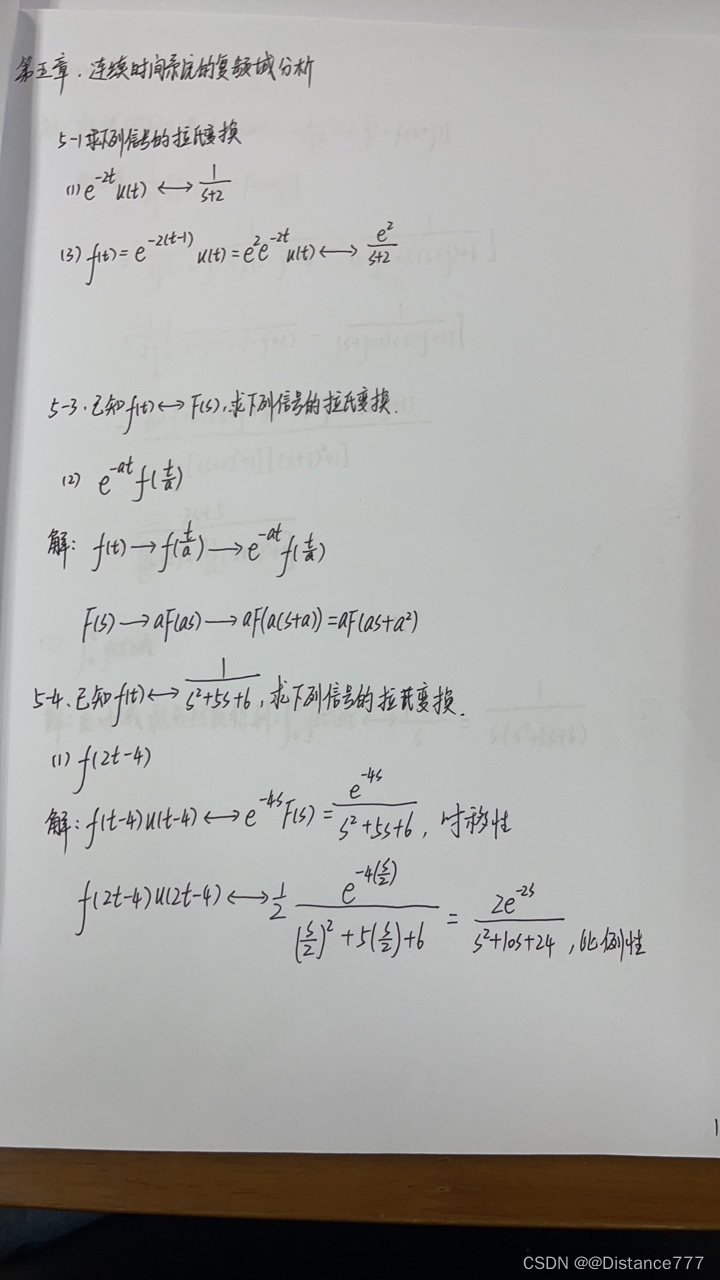 第五章.连续时间系统的复频域分析
5-1求下列信号的拉氏变换
(1) e^{-2t}u(t) ↔ \frac{1}{s+2}
(3) f(t)=e^{-2(t-1)}u(t)=e^{2}e^{-2t}u(t)↔\frac{e^{2}}{s+2}
5-3.已知f(t)↔F(s),求下列信号的拉氏变换.
(2) e^{-at}f(\frac{t}{a})
解: f(t)→f(\frac{t}{a})→e^{-at}f(\frac{t}{a})
F(s)→aF(as)→aF(a(s+a))=aF(as+a^{2})
5-4.已知f(t)↔\frac{1}{s^{2}+5s+6},求下列信号的拉氏变换.
(1) f(2t-4)
解:f(t-4)u(t-4)↔e^{-4s}F(s)=\frac{e^{-4s}}{s^{2}+5s+6},时移性
f(2t-4)u(2t-4)↔\frac{1}{2}\frac{e^{-4(\frac{s}{2})}}{(\frac{s}{2})^{2}+5(\frac{s}{2})+6}=\frac{2e^{-2s}}{s^{2}+10s+24},比例性
1
CSDN @@Distance777